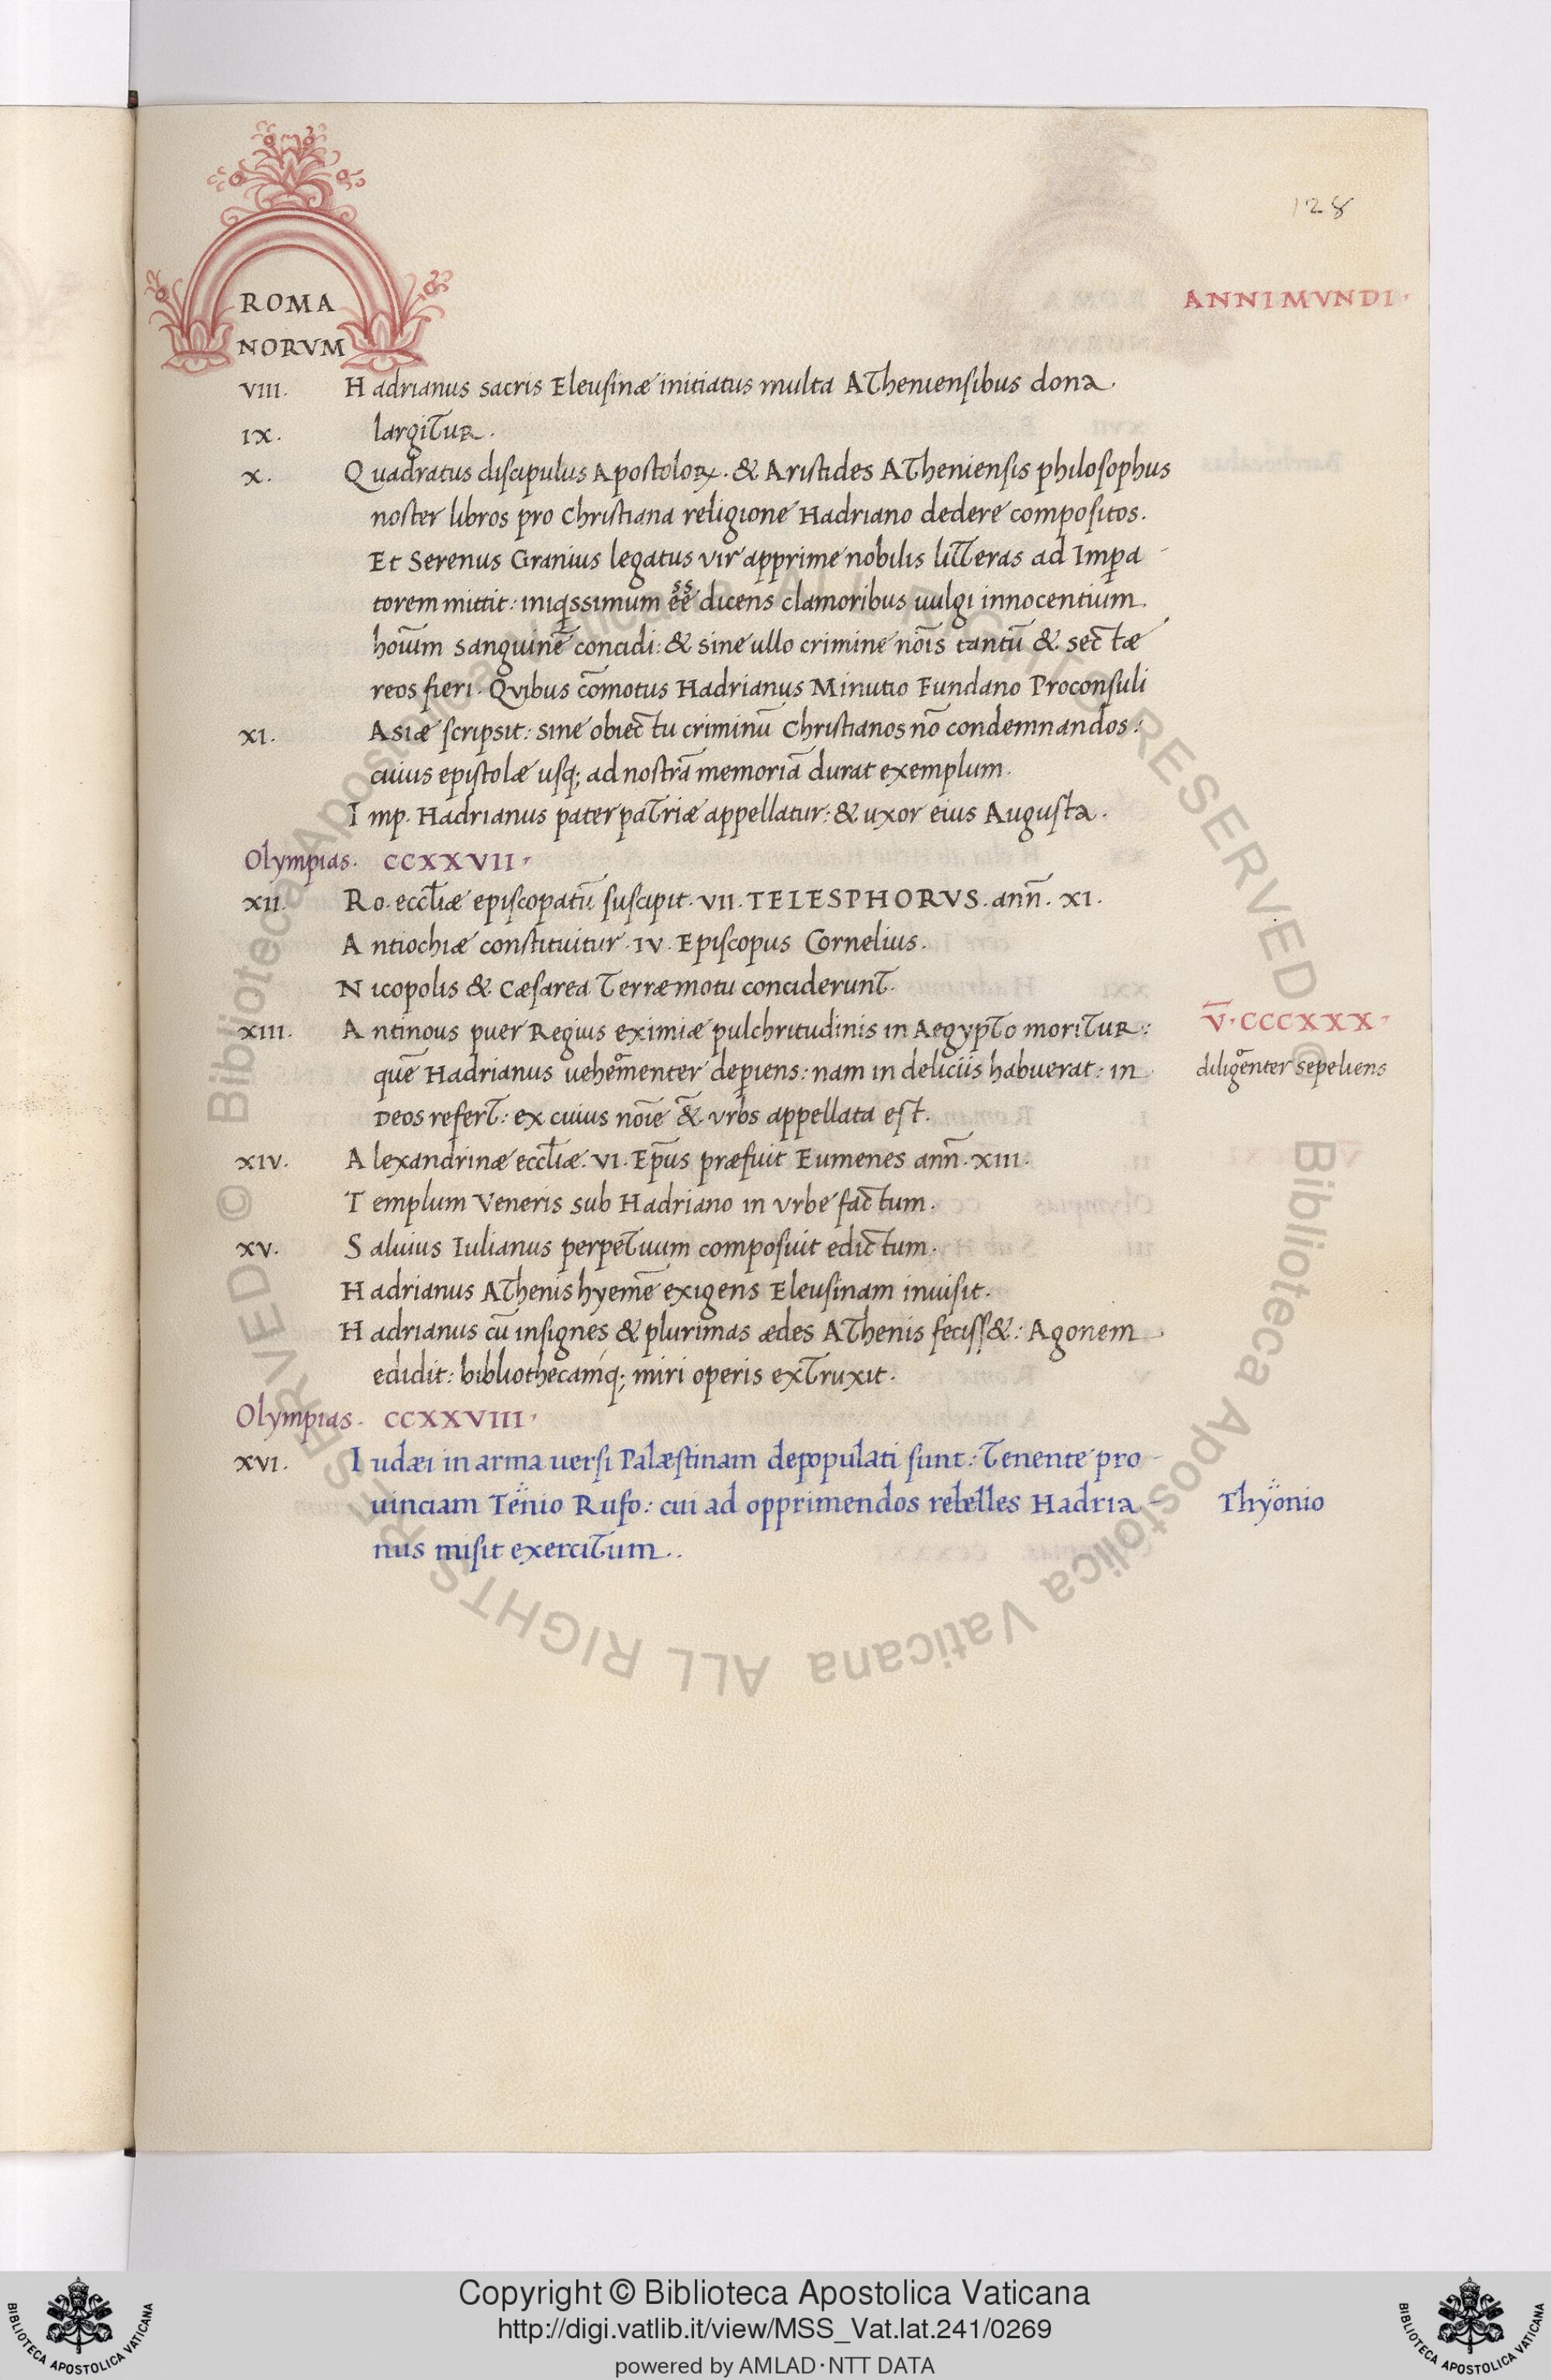 128
ROMA
NORVM
ANNI MVNDI·
VIII. Hadrianus sacris Eleusinæ initiatus multa Atheniensibus dona
IX. largitur.
X. Quadratus discipulus Apostoloꝝ. & Aristides Atheniensis philosophus
noster libros pro Christiana religione Hadriano dedere compositos.
Et Serenus Granius legatus vir apprime nobilis litteras ad Imꝑa-
torem mittit: iniqssimum ẽẽ dicens clamoribus uulgi innocentium
hoium sanguinẽ concidi: & sine ullo crimine nõis tantũ & sectæ
reos fieri. Quibus cõmotus Hadrianus Minutio Fundano Proconsuli
XI. Asiæ scripsit: sine obiectu criminũ Christianos nõ condemnandos:
cuius epistolæ usq; ad nostrã memoriã durat exemplum.
Imp. Hadrianus pater patriæ appellatur: & uxor eius Augusta.
Olympias. CCXXVII·
XII. Ro. eccl̃iæ episcopatũ suscipit. VII. TELESPHORVS. anñ. XI.
Antiochiæ constituitur. IV. Episcopus Cornelius.
Nicopolis & Cæsarea Terræmotu conciderunt.
XIII. Antinous puer Regius eximiæ pulchritudinis in Aegypto moritur: V̅·CCCXXX·
quẽ Hadrianus uehementer deꝑiens: nam in deliciis habuerat: in diligenter sepeliens
Deos refert: ex cuius nõie & vrbs appellata est.
XIV. Alexandrinæ eccl̃iæ. VI. Ep̃us præfuit Eumenes anñ. XIII.
Templum Veneris sub Hadriano in vrbe factum.
XV. Saluius Iulianus perpetuum composuit edictum.
Hadrianus Athenis hyemẽ exigens Eleusinam inuisit.
Hadrianus cũ insignes & plurimas ædes Athenis feciss&: Agonem
edidit: bibliothecamq; miri operis extruxit.
Olympias. CCXXVIII·
XVI. Iudæi in arma uersi Palæstinam depopulati sunt: Tenente pro-
uinciam Tenio Rufo: cui ad opprimendos rebelles Hadria- Thyonio
nus misit exercitum..
© Biblioteca Apostolica Vaticana ALL RIGHTS RESERVED © Biblioteca Apostolica Vaticana ALL RIGHTS RESERVED
BIBLIOTECA APOSTOLICA VATICANA
Copyright © Biblioteca Apostolica Vaticana
http://digi.vatlib.it/view/MSS_Vat.lat.241/0269
powered by AMLAD·NTT DATA
BIBLIOTECA APOSTOLICA VATICANA